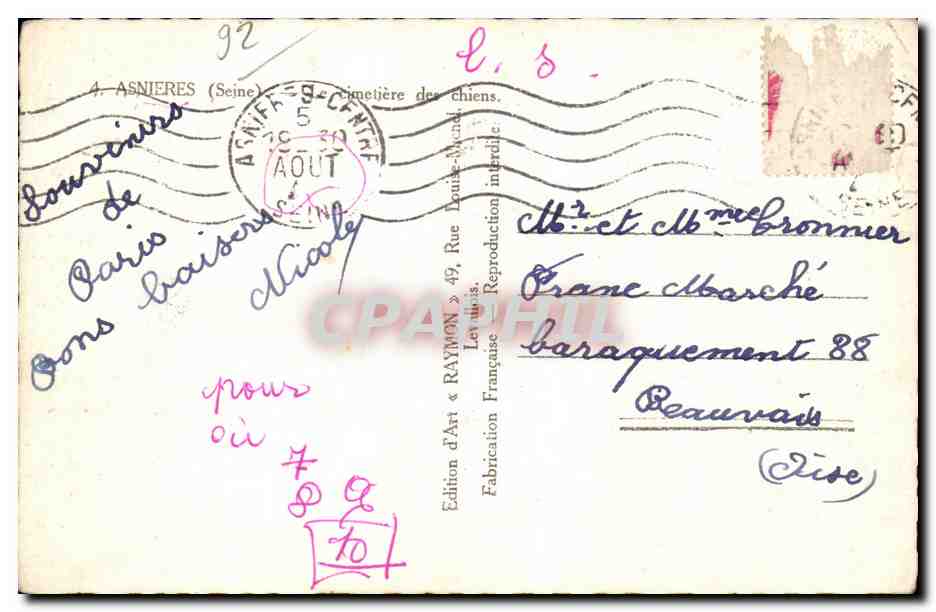 92
l. s.
4. ASNIERES (Seine) — Le cimetière des chiens.
ASNIERES-CENTRE
5
18 30
AOUT
SEINE
Souvenirs
de
Paris
Bons baisers
Nicole
pour
où
7
8 9
10
Edition d'Art « RAYMON » 49, Rue Louise-Michel,
Levallois.
Fabrication Française — Reproduction interdite
Mr et Mme Cronnier
Franc Marché
baraquement 88
Beauvais
(Oise)
CPAPHIL